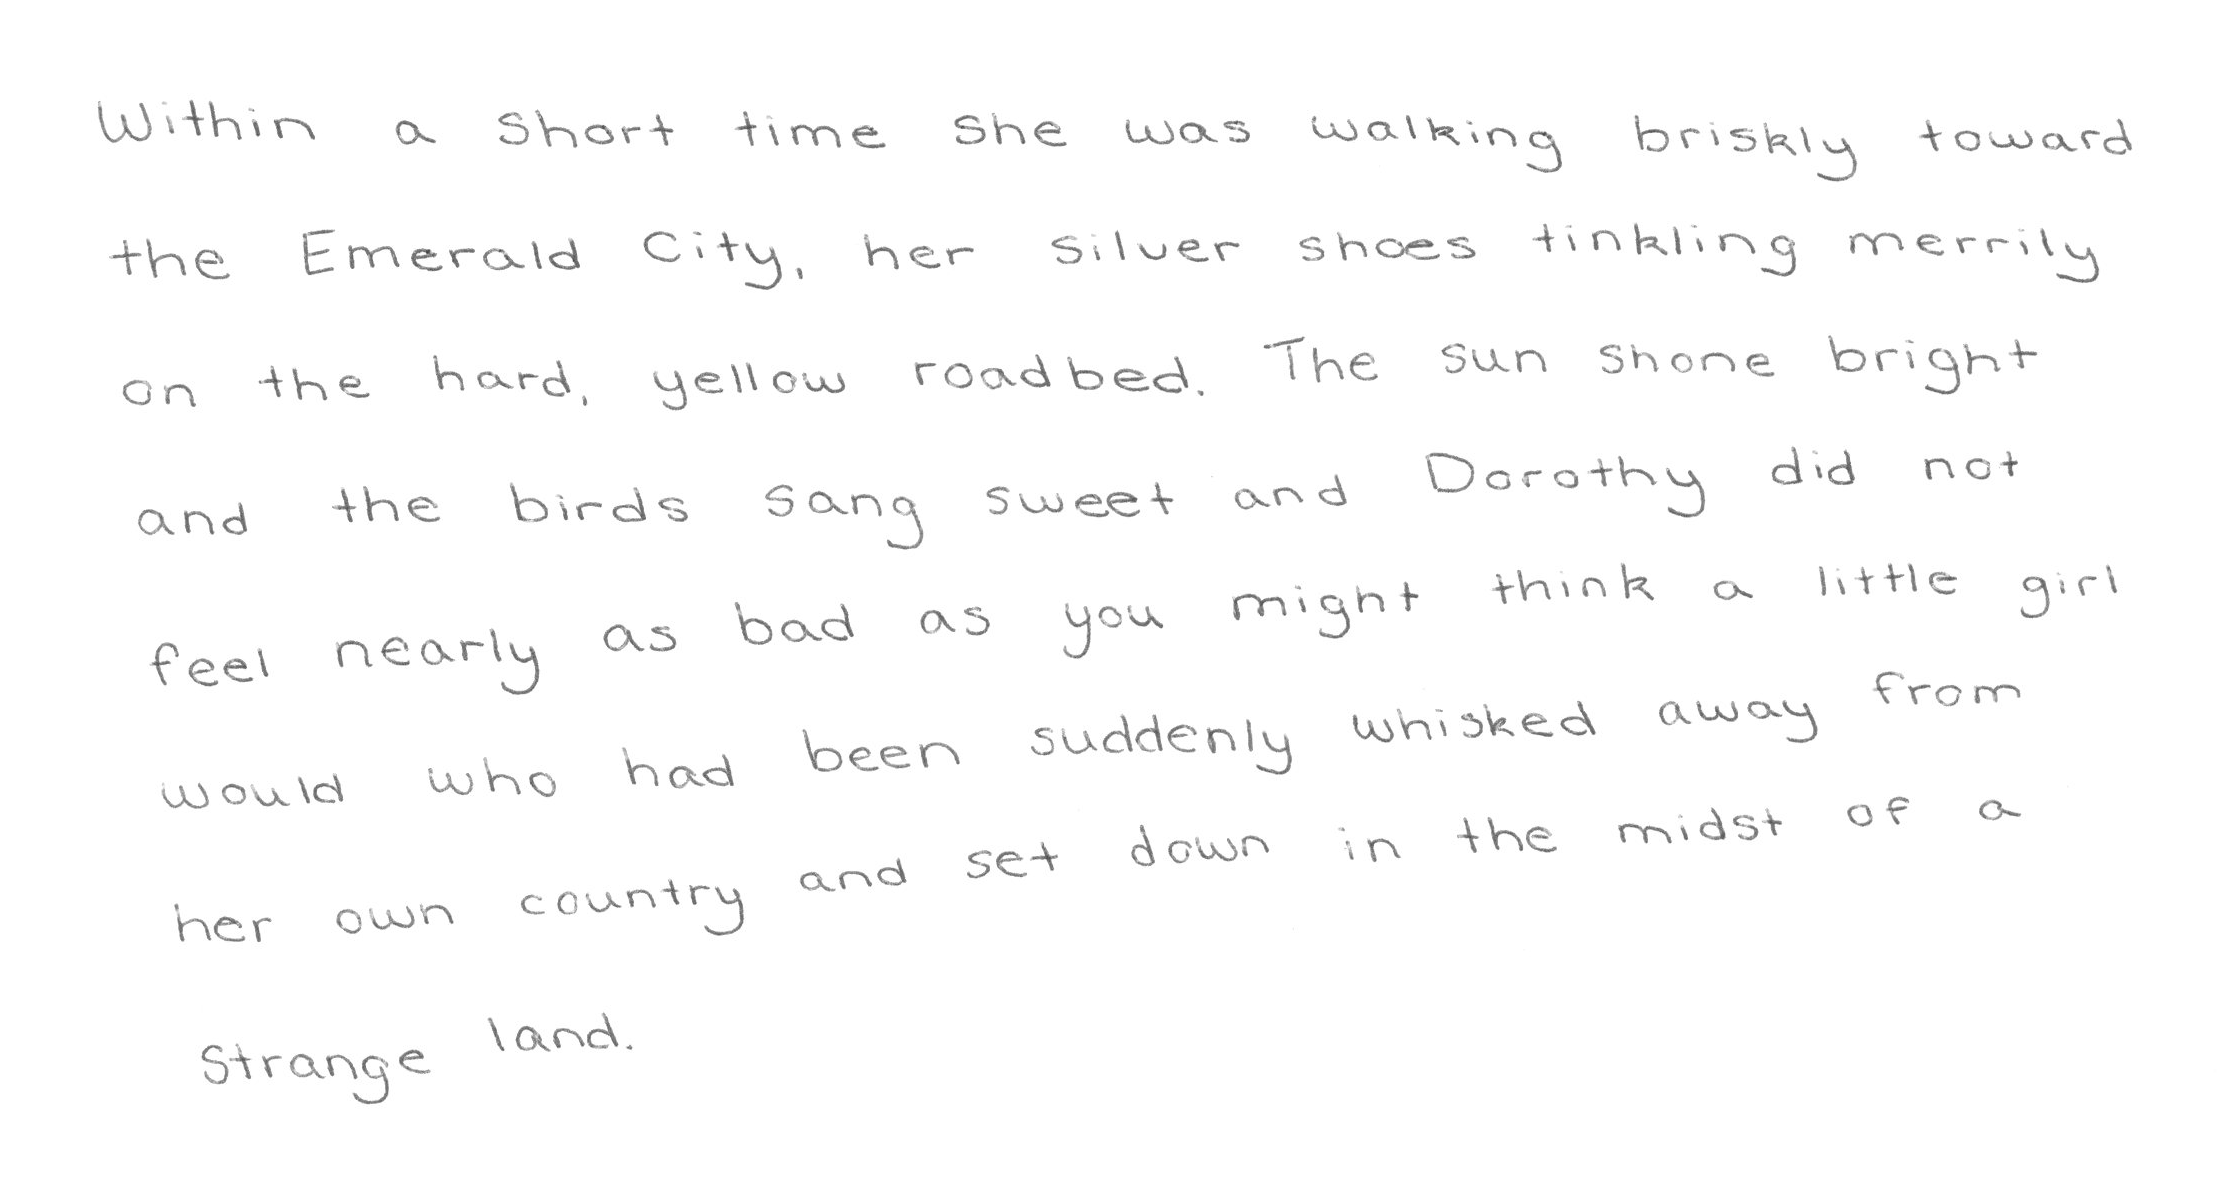 Within a short time she was walking briskly toward
the Emerald City, her silver shoes tinkling merrily
on the hard, yellow roadbed. The sun shone bright
and the birds sang sweet and Dorothy did not
feel nearly as bad as you might think a little girl
would who had been suddenly whisked away from
her own country and set down in the midst of a
strange land.